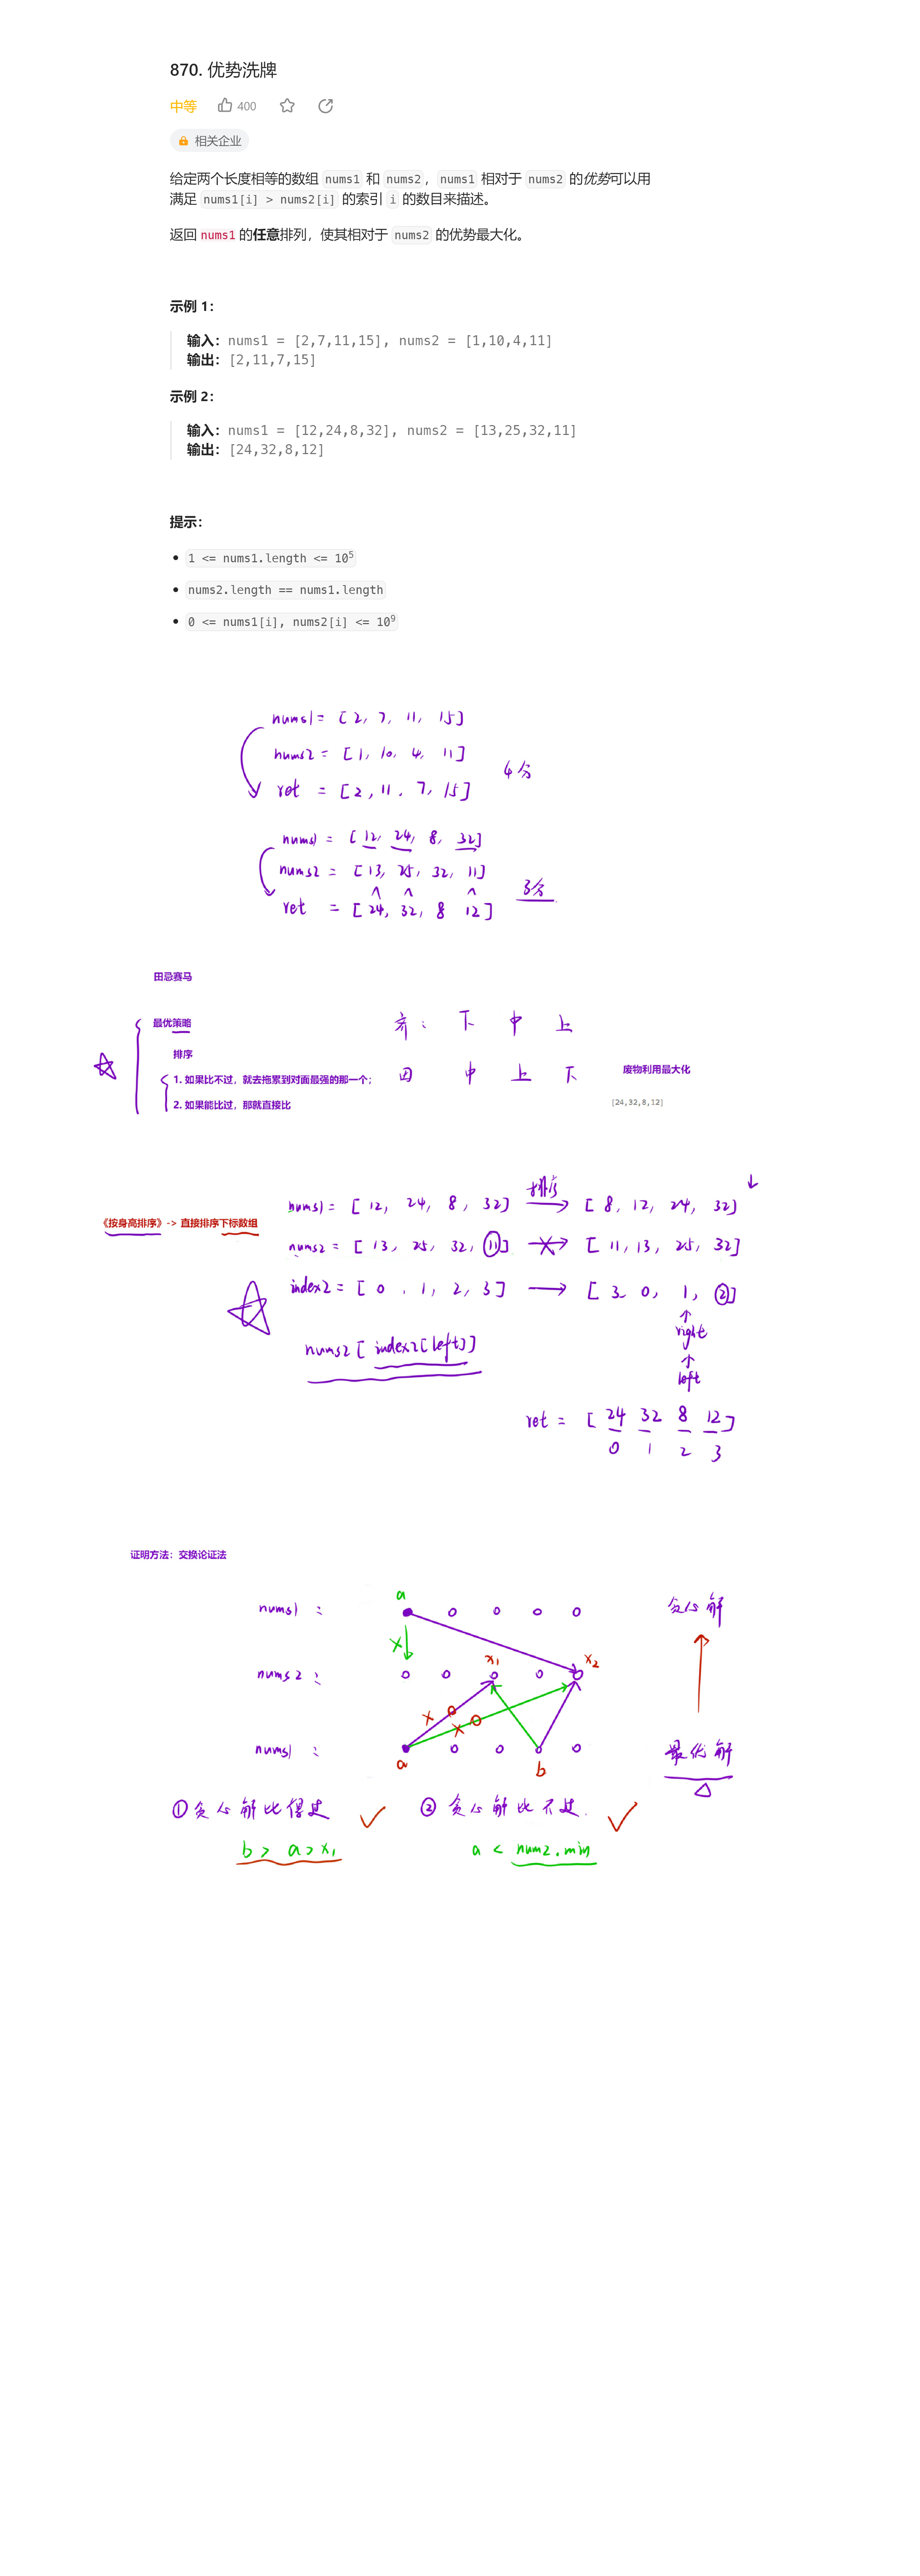 870. 优势洗牌
中等 400
相关企业
给定两个长度相等的数组 nums1 和 nums2，nums1 相对于 nums2 的优势可以用
满足 nums1[i] > nums2[i] 的索引 i 的数目来描述。
返回 nums1 的任意排列，使其相对于 nums2 的优势最大化。
示例 1：
输入：nums1 = [2,7,11,15], nums2 = [1,10,4,11]
输出：[2,11,7,15]
示例 2：
输入：nums1 = [12,24,8,32], nums2 = [13,25,32,11]
输出：[24,32,8,12]
提示：
1 <= nums1.length <= 10^5
nums2.length == nums1.length
0 <= nums1[i], nums2[i] <= 10^9
nums1 = [2, 7, 11, 15]
nums2 = [1, 10, 4, 11]
4分
ret = [2, 11, 7, 15]
nums1 = [12, 24, 8, 32]
nums2 = [13, 25, 32, 11]
3分
ret = [24, 32, 8 12]
田忌赛马
最优策略
齐： 下 中 上
排序
田 中 上 下
废物利用最大化
1. 如果比不过，就去拖累到对面最强的那一个；
2. 如果能比过，那就直接比
[24,32,8,12]
nums1 = [12, 24, 8, 32] 排序 [8, 12, 24, 32]
《按身高排序》-> 直接排序下标数组
nums2 = [13, 25, 32, 11] [11, 13, 25, 32]
index2 = [0, 1, 2, 3] [3, 0, 1, 2]
right
nums2[index2[left]]
left
ret = [24 32 8 12]
0 1 2 3
证明方法：交换论证法
a
nums1 :
贪心解
x1 x2
nums2 :
nums1 :
最优解
a b
① 贪心解比得过 ② 贪心解比不过.
b > a > x1 a < num2.min